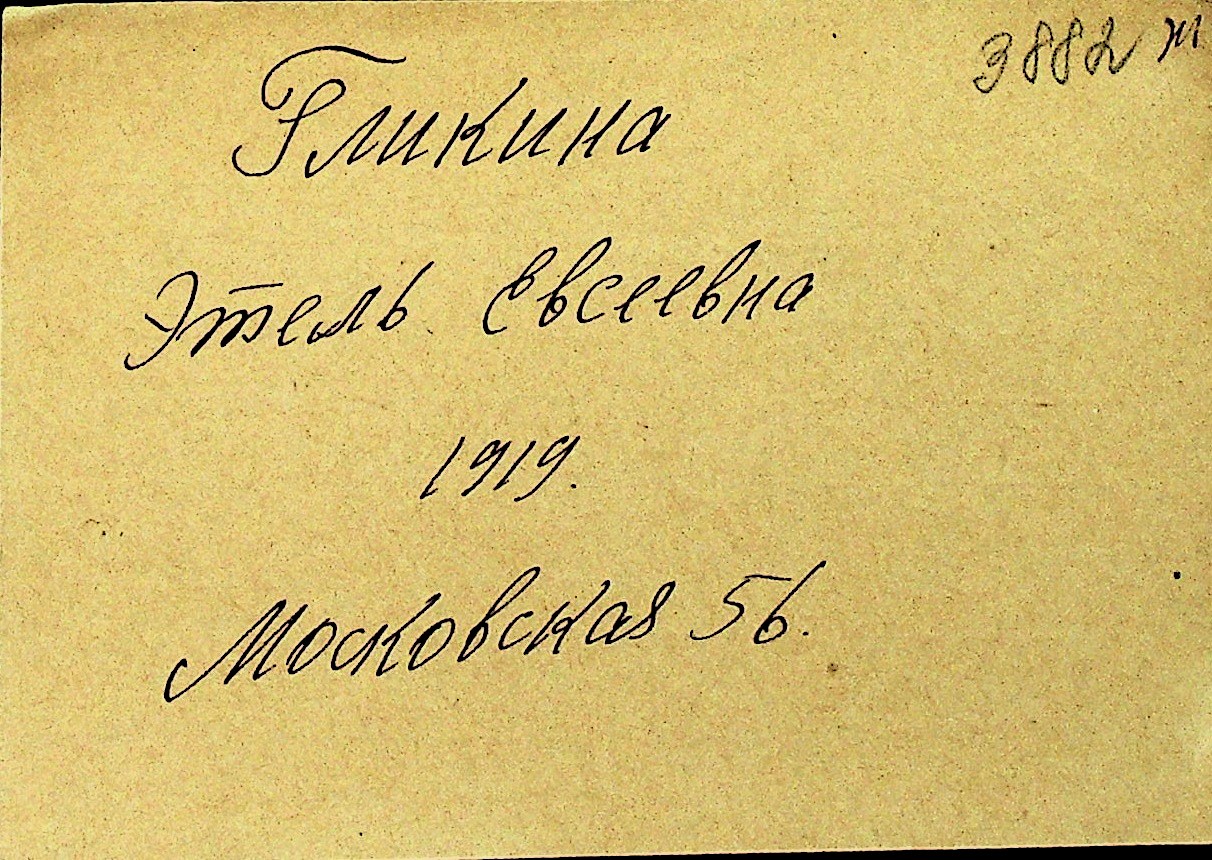 3882 ж
Гликина
Этель Евсеевна
1919.
Московская 56.